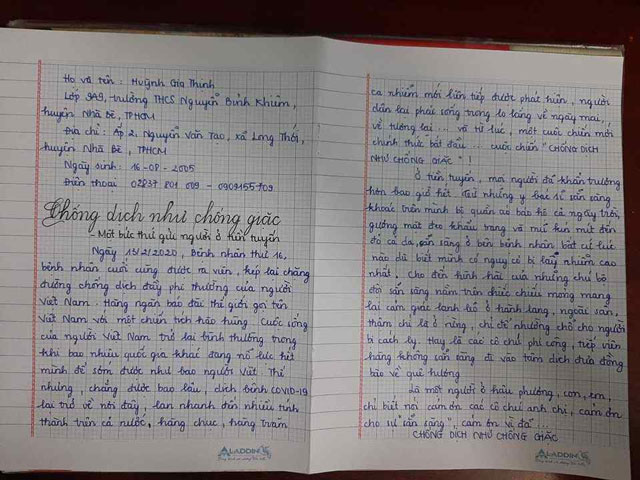 Họ và tên : Huỳnh Gia Thịnh
Lớp 9A9, trường THCS Nguyễn Bỉnh Khiêm,
huyện Nhà Bè, TPHCM
Địa chỉ : Ấp 2, Nguyễn Văn Tạo, xã Long Thới,
huyện Nhà Bè, TPHCM
Ngày sinh : 16-08-2005
Điện thoại : 02837 801 009 - 0909155709
Chống dịch như chống giặc
- Một bức thư gửi người ở tiền tuyến
Ngày 13/2/2020, Bệnh nhân thứ 16,
bệnh nhân cuối cùng được ra viện, khép lại chặng
đường chống dịch đầy phi thường của người
Việt Nam. Hàng ngàn báo đài thế giới gọi tên
Việt Nam với một chiến tích hào hùng. Cuộc sống
của người Việt Nam trở lại bình thường trong
khi bao nhiêu quốc gia khác đang nổ lực hết
mình để sớm được như bao người Việt. Thế
nhưng, chẳng được bao lâu, dịch bệnh COVID-19
lại trở về nơi đây, lan nhanh đến nhiều tỉnh
thành trên cả nước, hàng chục, hàng trăm
ALADDIN
ca nhiễm mới liên tiếp được phát hiện, người
dân lại phải sống trong lo lắng về ngày mai,
về tương lai ... và từ lúc, một cuộc chiến mới
chính thức bắt đầu ... cuộc chiến "CHỐNG DỊCH
NHƯ CHỐNG GIẶC" !
Ở tiền tuyến, mọi người đã khẩn trương
hơn bao giờ hết. Từ những y bác sĩ sẵn sàng
khoác trên mình bộ quần áo bảo hộ cả ngày trời,
gương mặt đeo khẩu trang và mũ kín mít đến
đỏ cả da, sẵn sàng ở bên bệnh nhân bất cứ lúc
nào dù biết mình có nguy cơ bị lây nhiễm cao
nhất. Cho đến hình hài của những chú bộ
đội sẵn sàng nằm trên chiếc chiếu mỏng mang
lại cảm giác lạnh lẽo ở hành lang, ngoài sân,
thậm chí là ở rừng, chỉ để nhường chỗ cho người
bị cách ly. Hay là các cô chú phi công, tiếp viên
hàng không sẵn sàng đi vào tâm dịch đưa đồng
bào về quê hương.
Là một người ở hậu phương, con, em,
chỉ biết nói cảm ơn các cô chú anh chị, cảm ơn
cho sự "sẵn sàng", cảm ơn vì đã
CHỐNG DỊCH NHƯ CHỐNG GIẶC
ALADDIN